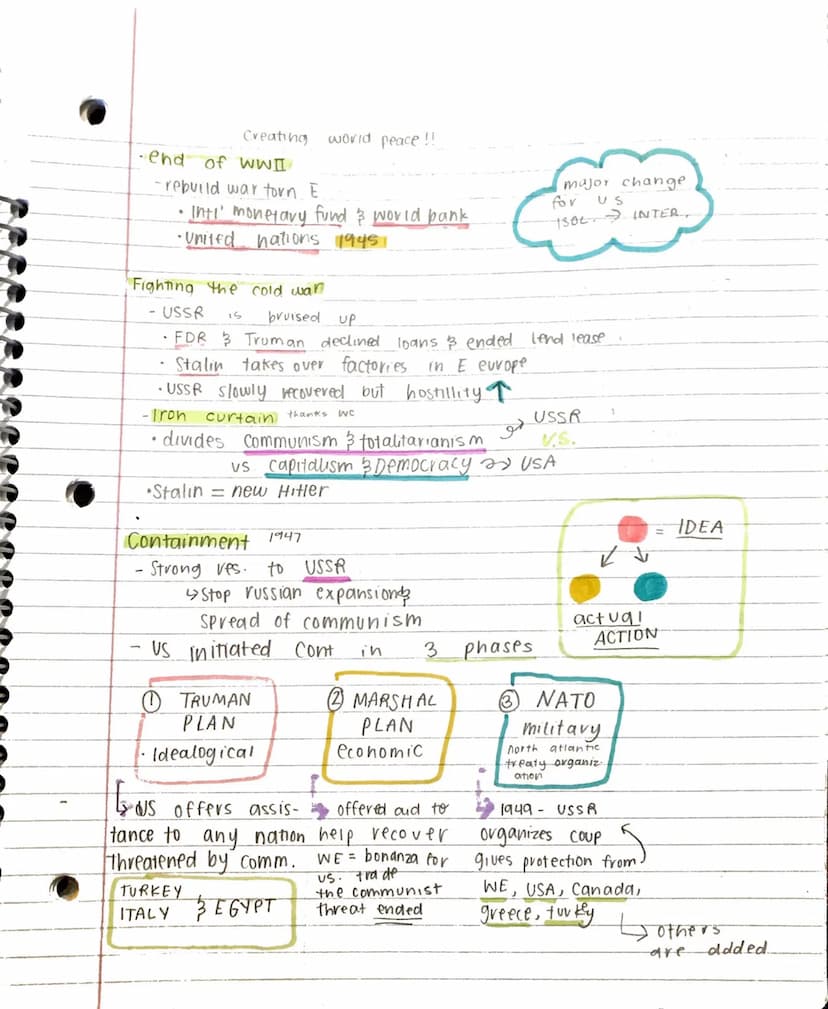 Creating world peace!!
· end of WWII
- rebuild war torn E
• Intl' monetary fund & world bank
• United nations 1945
major change
for US
ISOL. → INTER.
Fighting the cold war
- USSR is bruised up
• FDR & Truman declined loans & ended lend lease
• Stalin takes over factories in E europe
• USSR slowly recovered but hostillity ↑
- Iron curtain thanks WC
• divides communism & totalitarianism → USSR
V.S.
vs capitalism & Democracy → USA
• Stalin = new Hitler
Containment 1947
- Strong res. to USSR
↳ Stop russian expansion &
spread of communism
- US initiated cont in 3 phases
= IDEA
actual
ACTION
① TRUMAN
PLAN
· Idealogical
② MARSHAL
PLAN
economic
③ NATO
military
north atlantic
treaty organiz
ation
↳ US offers assis-
tance to any nation
threatened by comm.
TURKEY,
ITALY & EGYPT
→ offered aid to
help recover
WE = bonanza for
us. trade
the communist
threat ended
→ 1949 - USSR
organizes coup
gives protection from
WE, USA, Canada,
greece, turkey
↳ others
are added